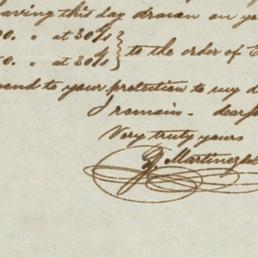 having this day drawn on yo
00. " at 30 d/s
0. " at 30 d/s } to the order of
end to your protection to my d
I remain - dear
Very truly yours
Martinez